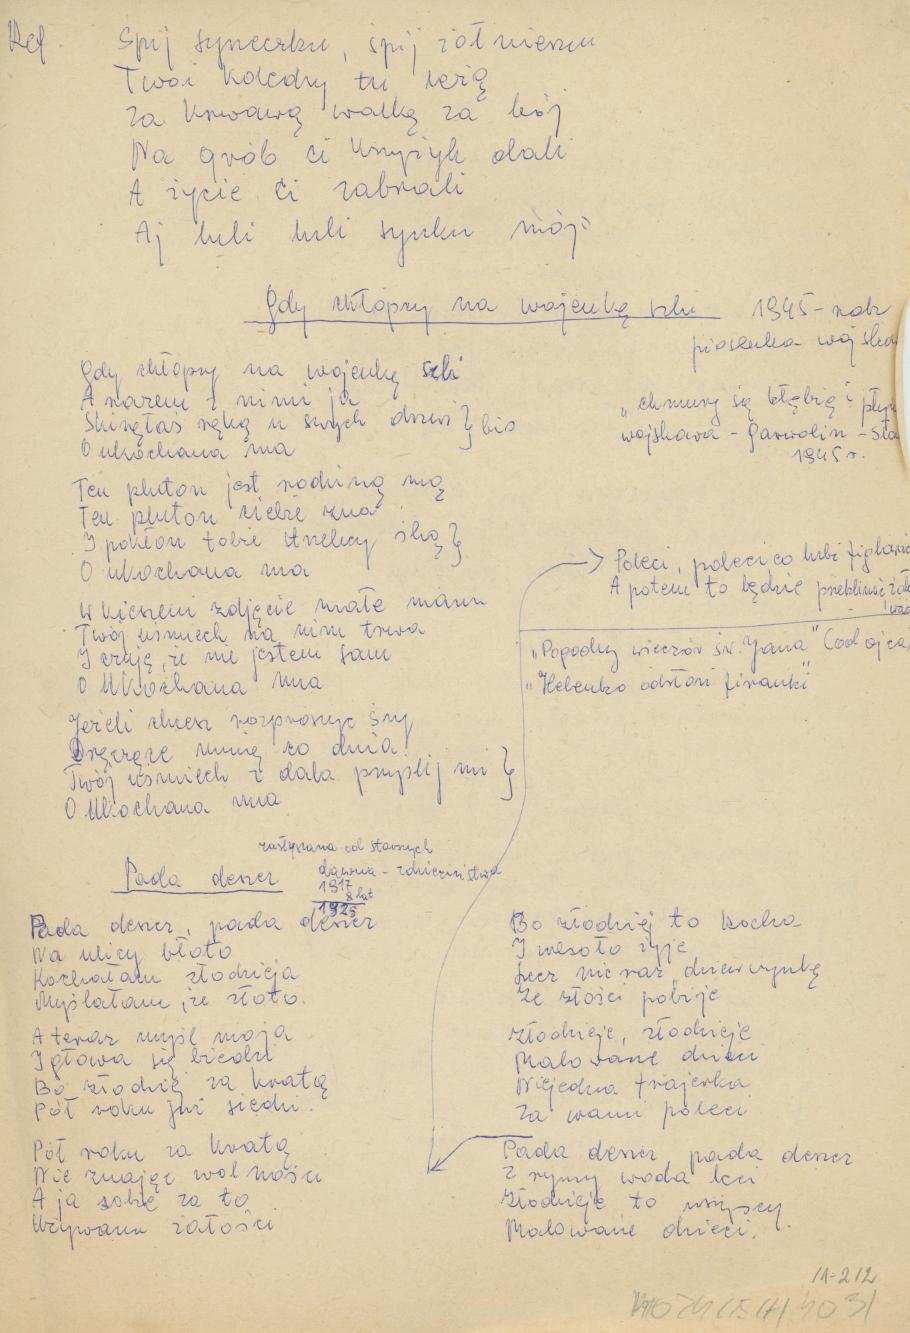 Ref. Śpij syneczku, śpij żołnierzu
Twoi koledzy tu leżą
Za krwawą walkę za bój
Na grób ci krzyżyk dali
A życie ci zabrali
Aj luli luli synku mój
Gdy chłopcy na wojenkę szli 1945-rok
piosenka wojska
Gdy chłopcy na wojenkę szli
A razem z nimi ja
Skinęłaś ręką u swych drzwi } bis
O ukochana ma
„chmury się kłębią i płyn
wojskowa - Garwolin - Sta
1945 r.
Ten pluton jest rodziną mą
Ten pluton ciebie zna
I pokłon tobie strzelcy ślą }
O ukochana ma
W kieszeni zdjęcie małe mam
Twój uśmiech na nim trwa
I czuję, że nie jestem sam
O Ukochana ma
Jeżeli chcesz rozproszyć sny
Dręczące mnie co dnia
Twój uśmiech z dala przyślij mi }
O Ukochana ma
Poleci, poleci, co lubi
A potem to będzie
„Pogodny wieczór św. Jana" (od ojca)
„Helenko odsłoń firanki"
zasłyszana od starszych
Pada deszcz dawna - z dzieciństwa
1917
8 lat
1925
Pada deszcz, pada deszcz
Na ulicy błoto
Kochałam złodzieja
Myślałam, że złoto.
A teraz myśl moja
I głowa się biedzi
Bo złodziej za kratą
Pół roku już siedzi.
Pół roku za kratą
Nie znając wolności
A ja sobie za to
Używam żałości
Bo złodziej to kocha
I wesoło żyje
Lecz nie raz dziewczynkę
Ze złości pobije
Złodzieje, złodzieje
Malowane dzieci
Niejedna frajerka
Za wami poleci
Pada deszcz, pada deszcz
Z rynny woda leci
Złodzieje to wszyscy
Malowane dzieci.
11-212